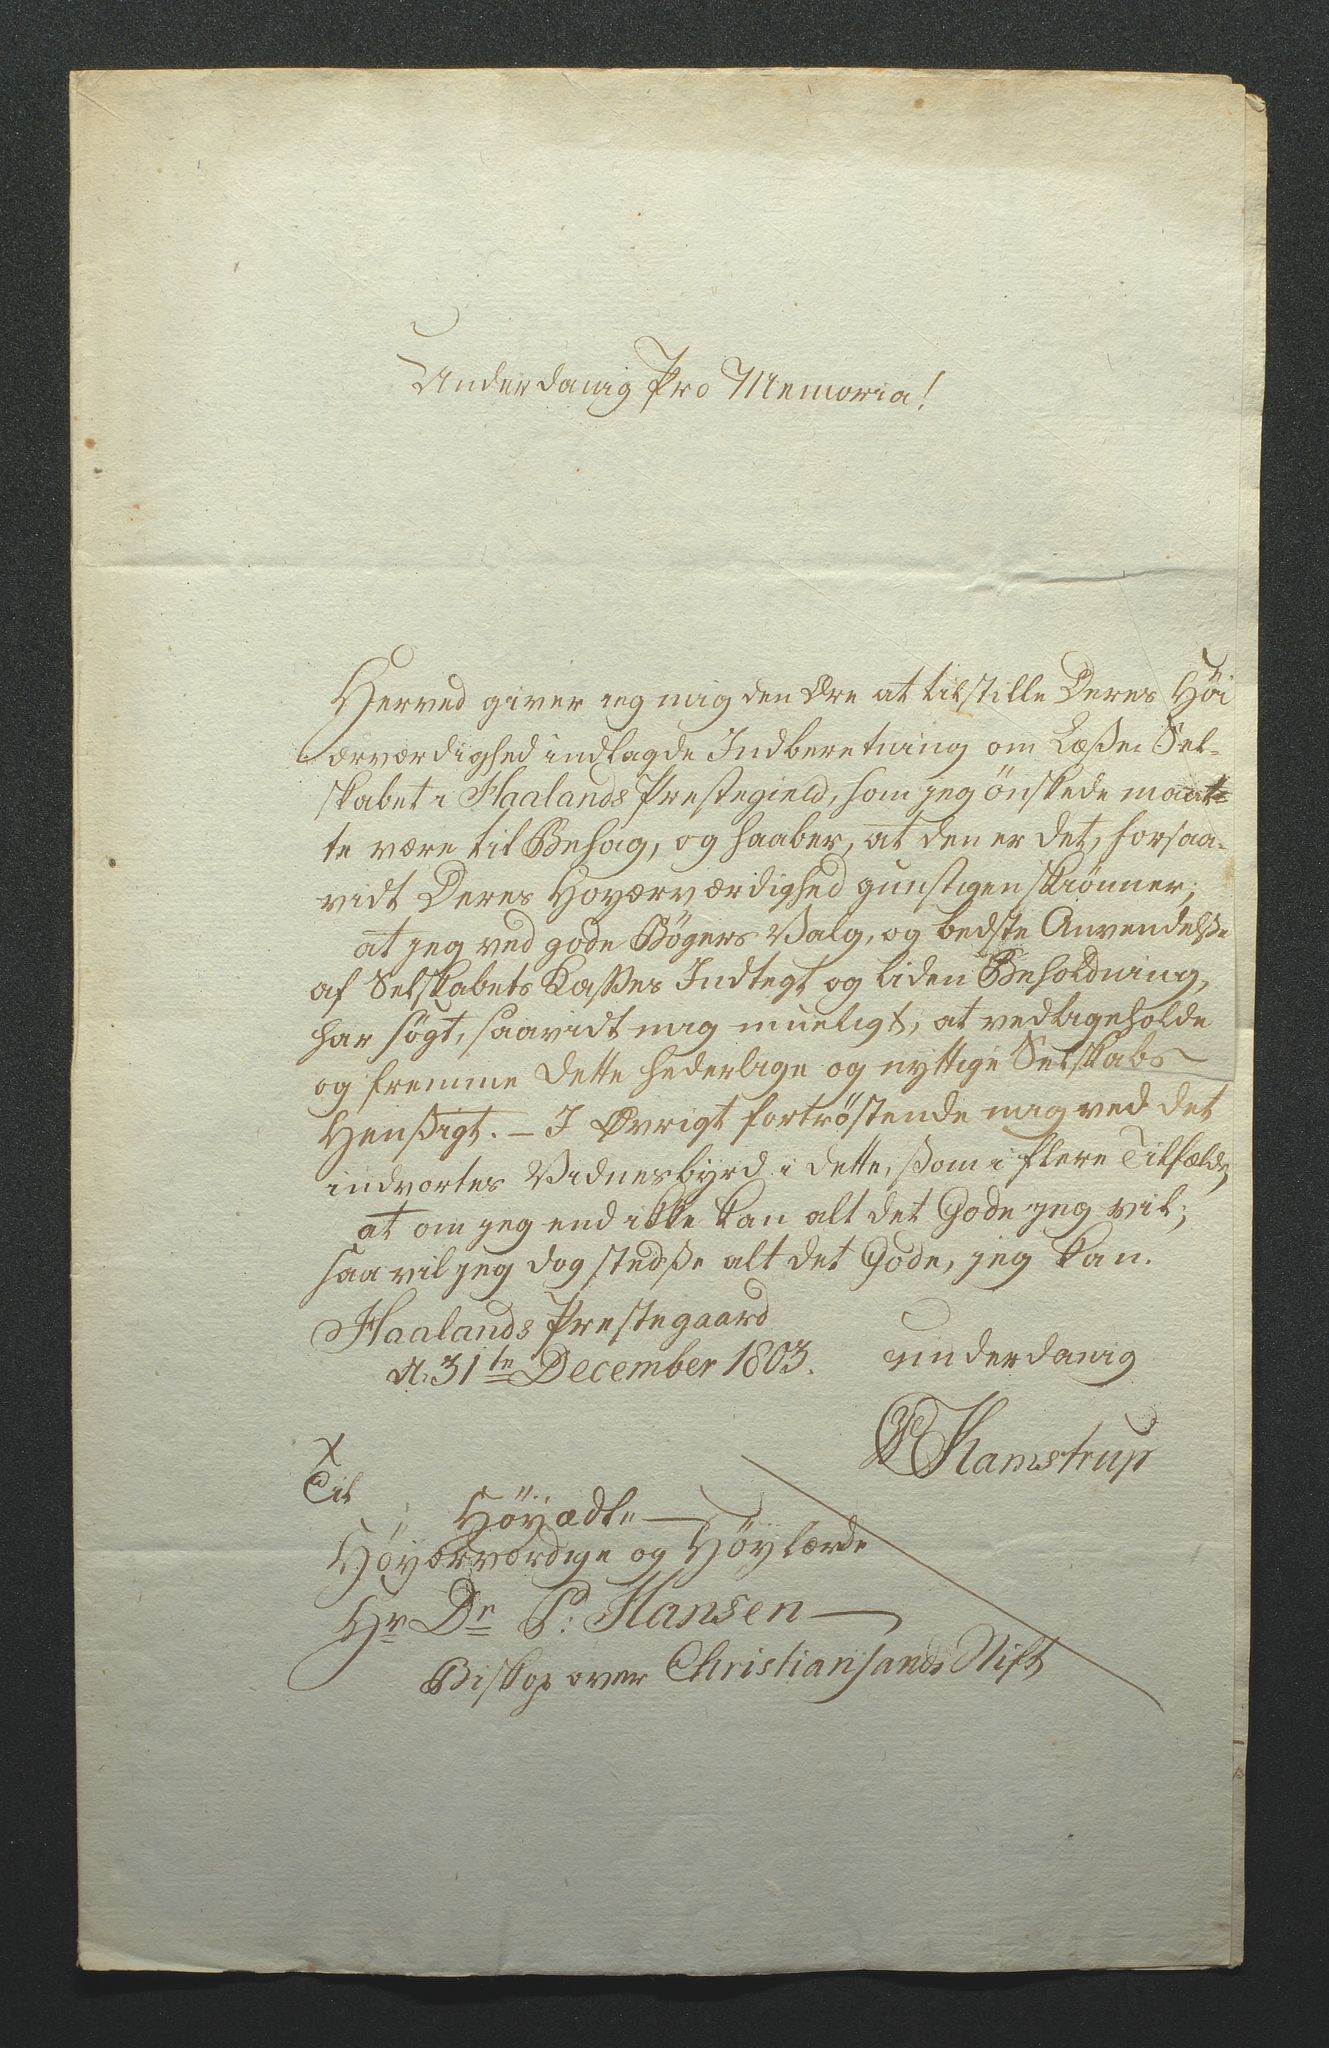 Underdanig Pro Memoria!
Herved giver ieg mig den Ære at tilstille Deres Höi
ærværdighed indlagde Indberetning om Læße Sel-
skabet i Haalands Prestegield, som jeg önskede maat-
te være til Behag, og haaber, at den er det, forsaa-
vidt Deres Høyærværdighed gunstigen skiönner,
at jeg ved gode Bögers Valg, og bedste Anvendelße
af Selskabets Kaßes Indtegt og liden Beholdning,
har sögt, saavidt mig mueligt, at vedligeholde
og fremme dette hederlige og nyttige Selskabs
Henßigt. – I Øvrigt fortröstende mig ved det
indvortes Vidnesbyrd i dette, ßom i flere Tilfælde,
at om jeg end ikke kan alt det Gode jeg vil;
saa vil jeg dog stedße alt det Gode, jeg kan.
Haalands Prestegaard
d. 31te December 1803. underdanig
Kamstrup
Til
Höyædle
Höyærværdige og Höylærde
Hr Dr P. Hansen
Biskop over Christiansands Stift